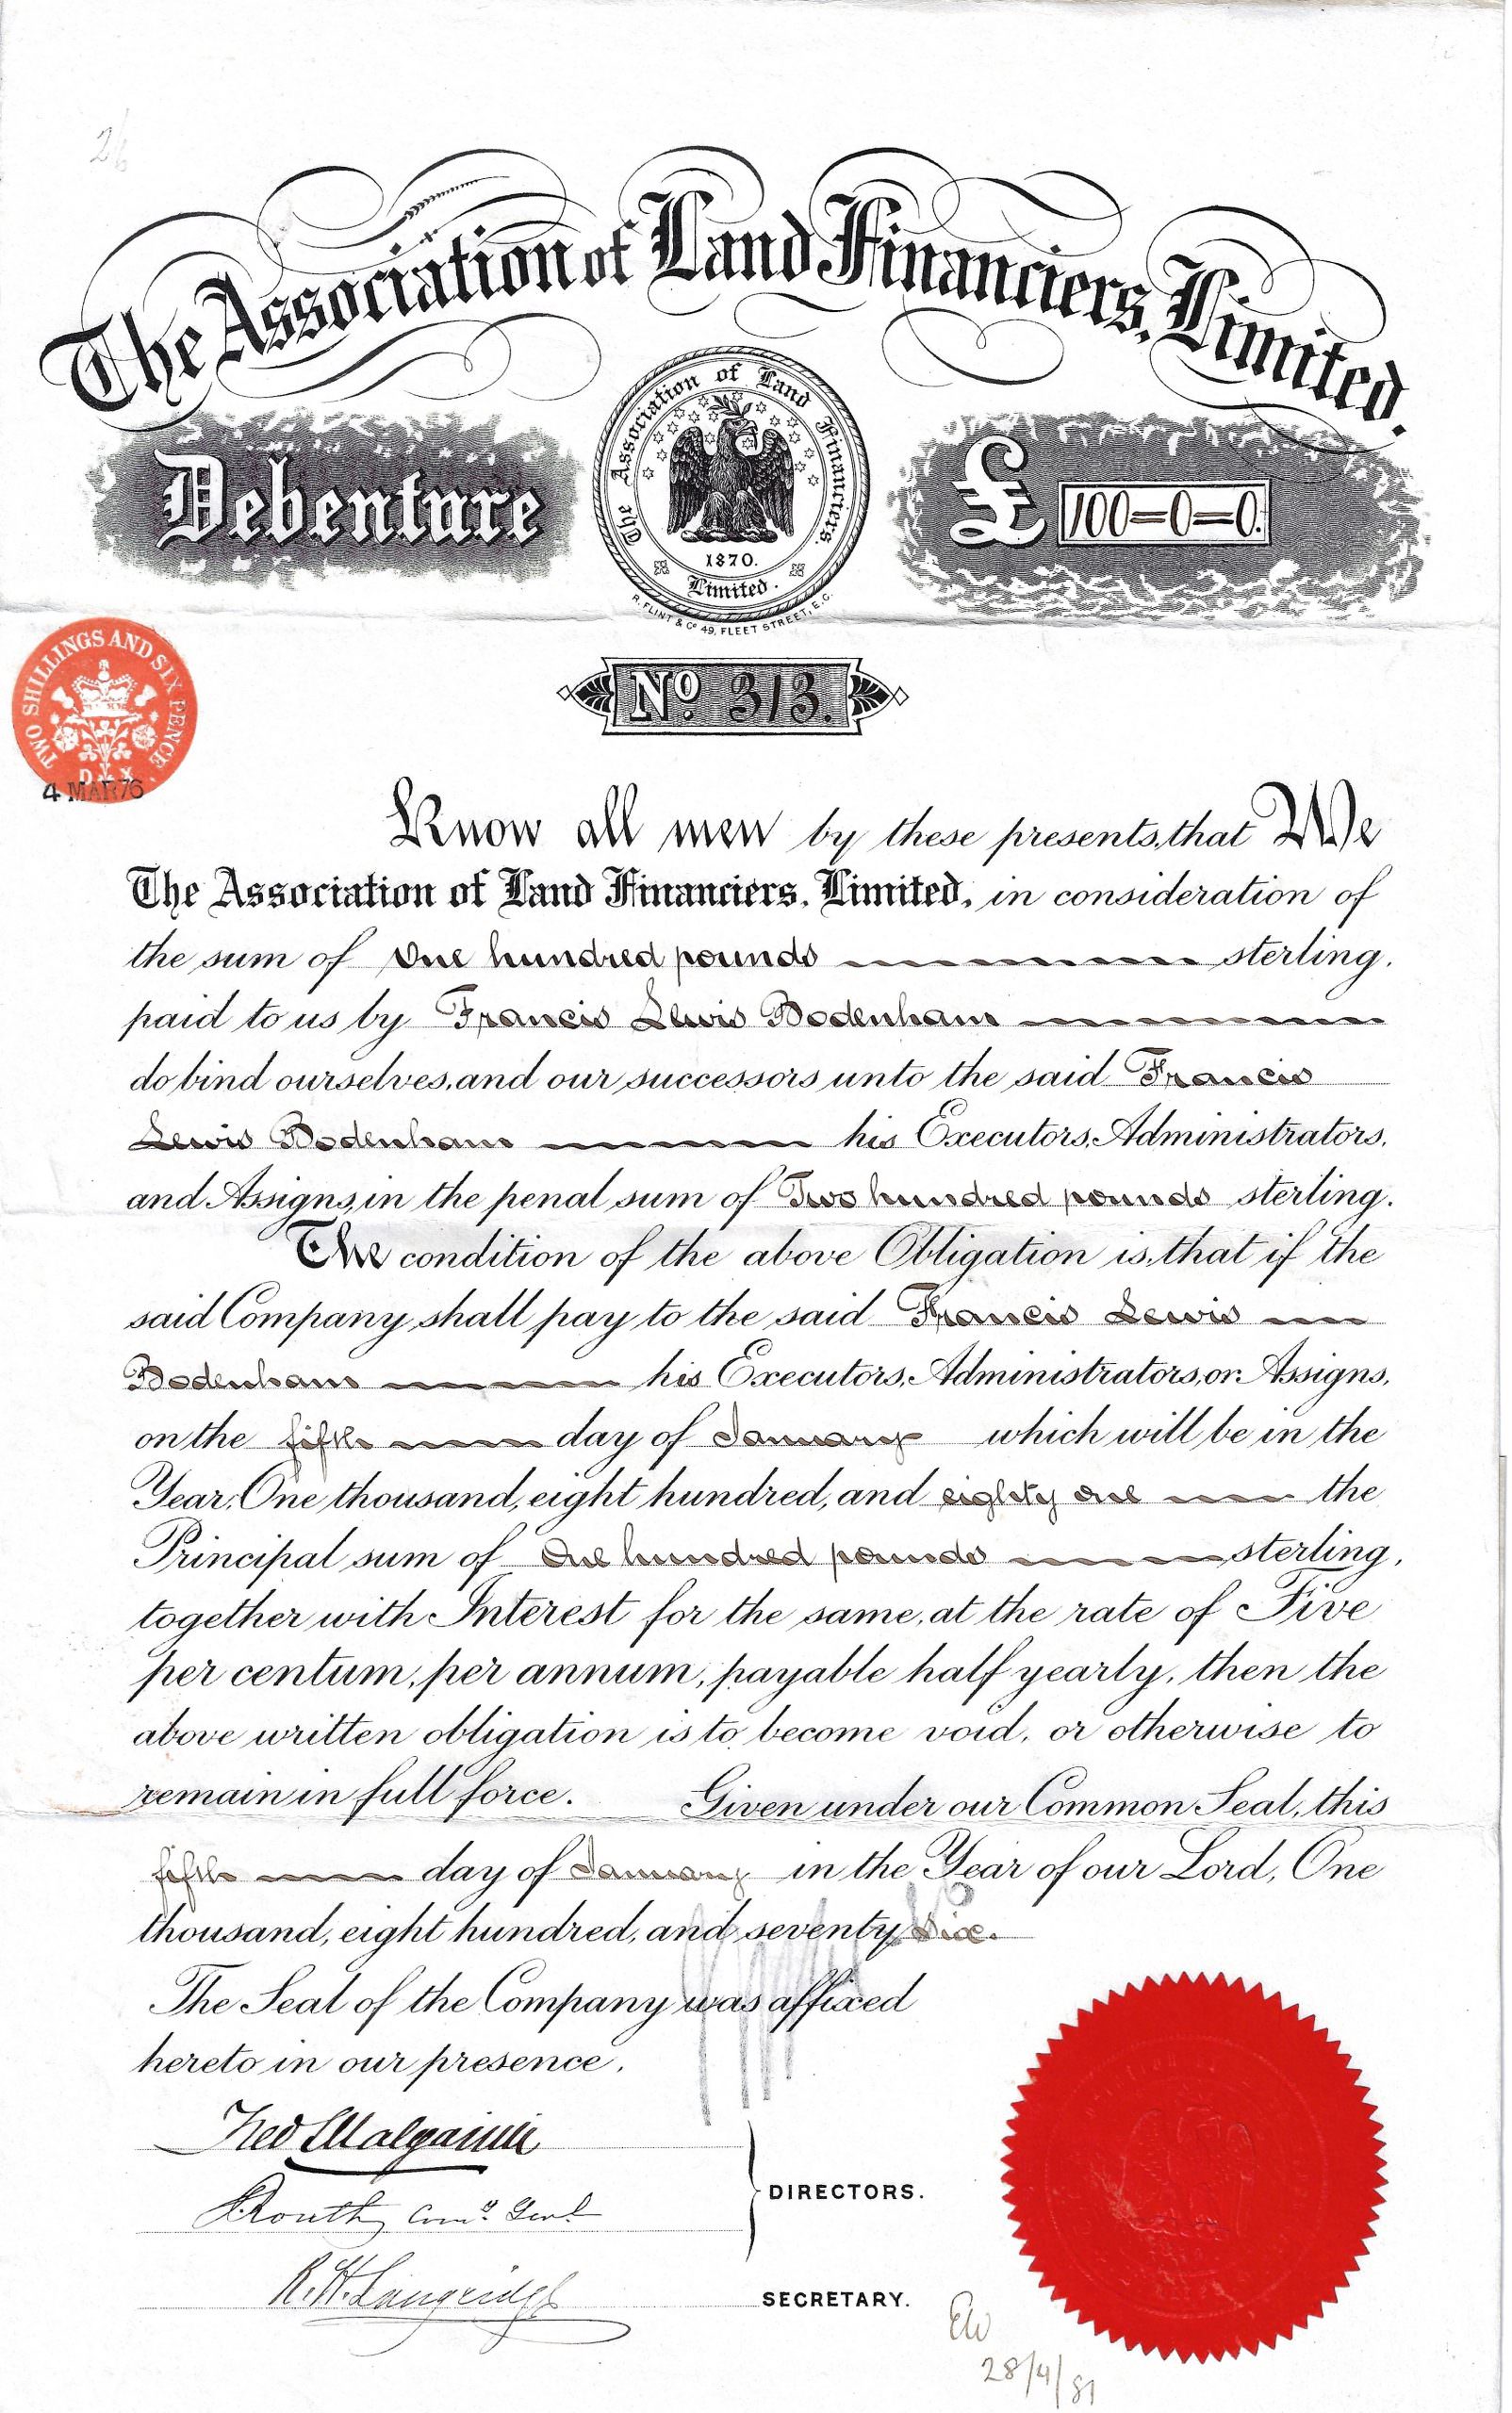 26
The Association of Land Financiers, Limited.
Debenture
The Association of Land Financiers.
1870.
Limited.
R. FLINT & Co 49, FLEET STREET, E.C.
£ 100=0=0.
No. 313.
TWO SHILLINGS AND SIX PENCE
4 MAR 76
Know all men by these presents, that We
The Association of Land Financiers, Limited, in consideration of
the sum of One hundred pounds sterling,
paid to us by Francis Lewis Bodenham
do bind ourselves, and our successors unto the said Francis
Lewis Bodenham his Executors, Administrators,
and Assigns, in the penal sum of Two hundred pounds sterling.
The condition of the above Obligation is, that if the
said Company shall pay to the said Francis Lewis
Bodenham his Executors, Administrators, or Assigns,
on the fifth day of January which will be in the
Year, One thousand, eight hundred, and eighty one the
Principal sum of One hundred pounds sterling,
together with Interest for the same, at the rate of Five
per centum, per annum, payable half yearly, then the
above written obligation is to become void, or otherwise to
remain in full force. Given under our Common Seal, this
fifth day of January in the Year of our Lord, One
thousand, eight hundred, and seventy six.
The Seal of the Company was affixed
hereto in our presence.
Routh
DIRECTORS.
R. H. Langridge
SECRETARY.
EW
28/4/81